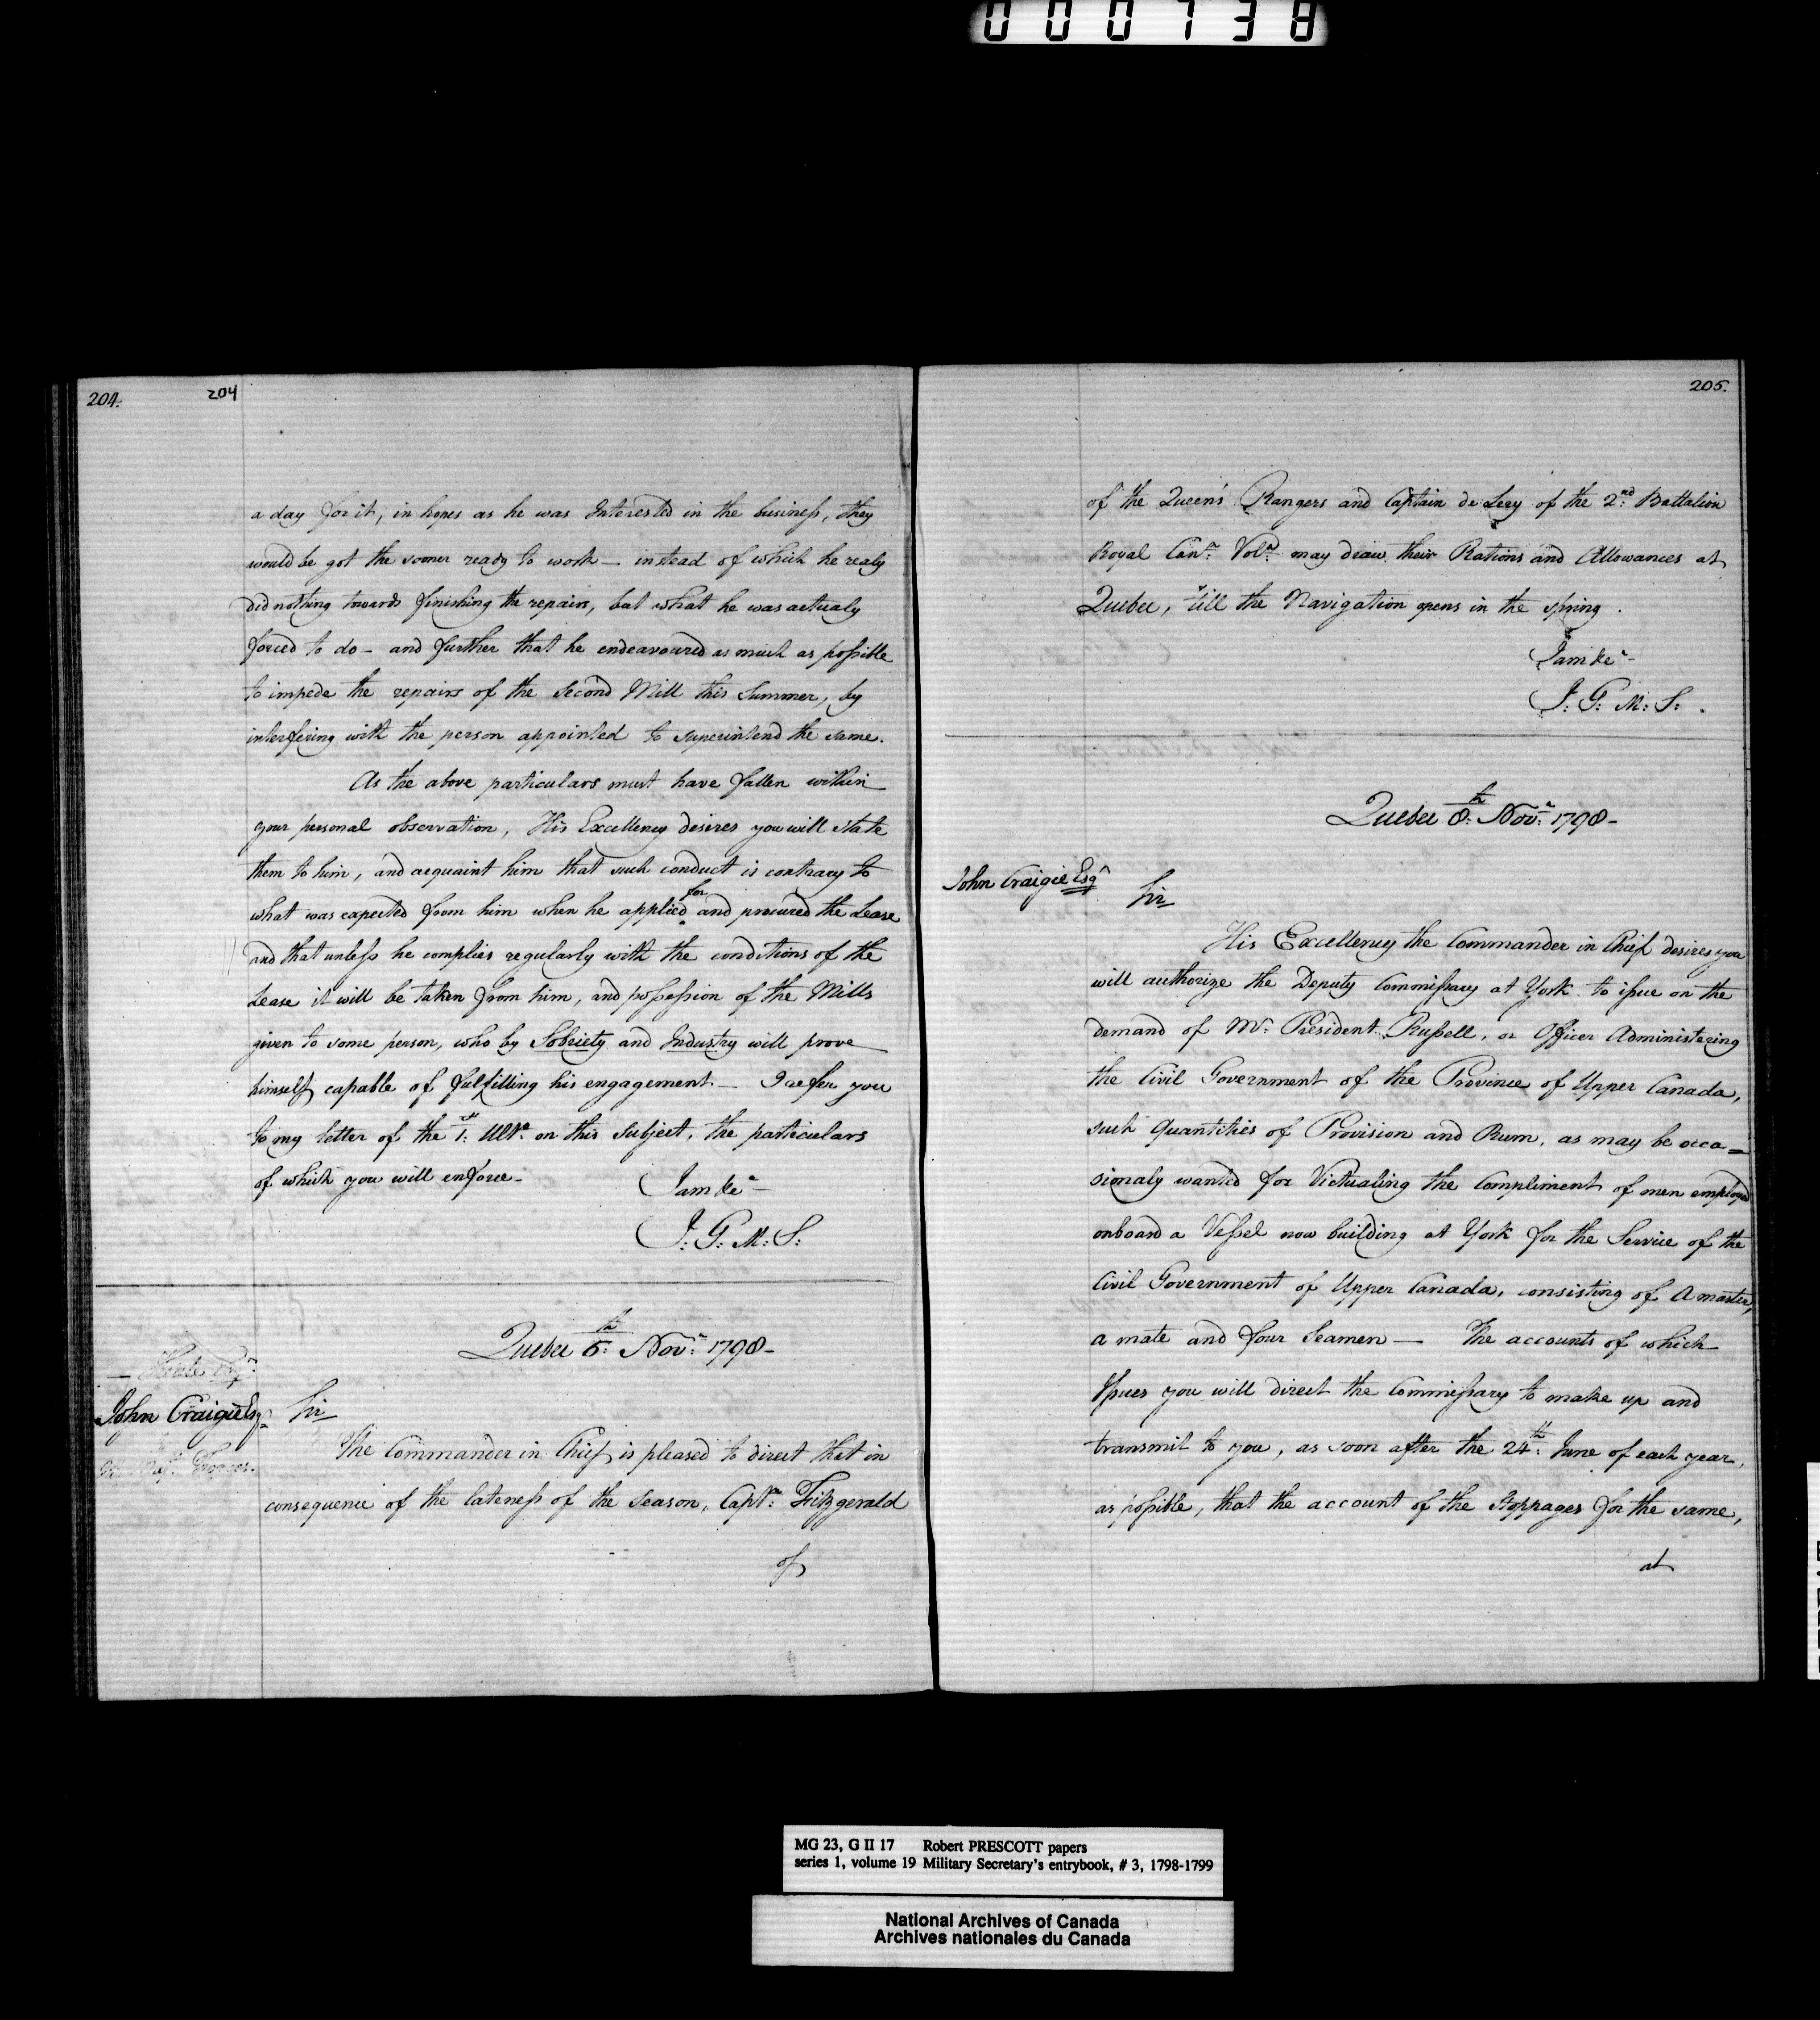 000738
204.
204
a day for it, in hopes as he was Interested in the business, they
would be got the sooner ready to work — instead of which he realy
did nothing towards finishing the repairs, but what he was actualy
forced to do — and further that he endeavoured as much as possible
to impede the repairs of the Second Mill this Summer, by
interfering with the person appointed to superintend the same.
As the above particulars must have fallen within
your personal observation, His Excellency desires you will state
them to him, and acquaint him that such conduct is contrary to
for
what was expected from him when he applied and procured the Lease
and that unless he complies regularly with the conditions of the
Lease it will be taken from him, and possession of the Mills
given to some person, who by Sobriety and Industry will prove
himself capable of fulfilling his engagement — I refer you
to my letter of the 1st: Ulto. on this Subject, the particulars
of which you will enforce —
I am &ca —
J: G: M: S:
Quebec 6th: Novr: 1798 —
John Craigie Esqr
Sir
The Commander in Chief is pleased to direct that in
consequence of the lateness of the Season, Captn: Fitzgerald
of
205.
of the Queen's Rangers and Captain de Lery of the 2nd: Battalion
Royal Cann: Vols: may draw their Rations and Allowances at
Quebec, till the Navigation opens in the spring.
I am &ca —
J: G: M: S: .
Quebec 8th: Novr: 1798 —
John Craigie Esqr
Sir
His Excellency the Commander in Chief desires you
will authorize the Deputy Commissary at York to issue on the
demand of Mr: President Russell, or Officer Administering
the Civil Government of the Province of Upper Canada,
such Quantities of Provision and Rum, as may be occa=
sionaly wanted for Victualing the Compliment of men employed
onboard a Vessel now building at York for the Service of the
Civil Government of Upper Canada, consisting of A master,
a mate and four Seamen — The accounts of which
Issues you will direct the Commissary to make up and
transmit to you, as soon after the 24th: June of each year,
as possible, that the account of the Stoppages for the same,
at
MG 23, G II 17 Robert PRESCOTT papers
series 1, volume 19 Military Secretary's entrybook, # 3, 1798-1799
National Archives of Canada
Archives nationales du Canada